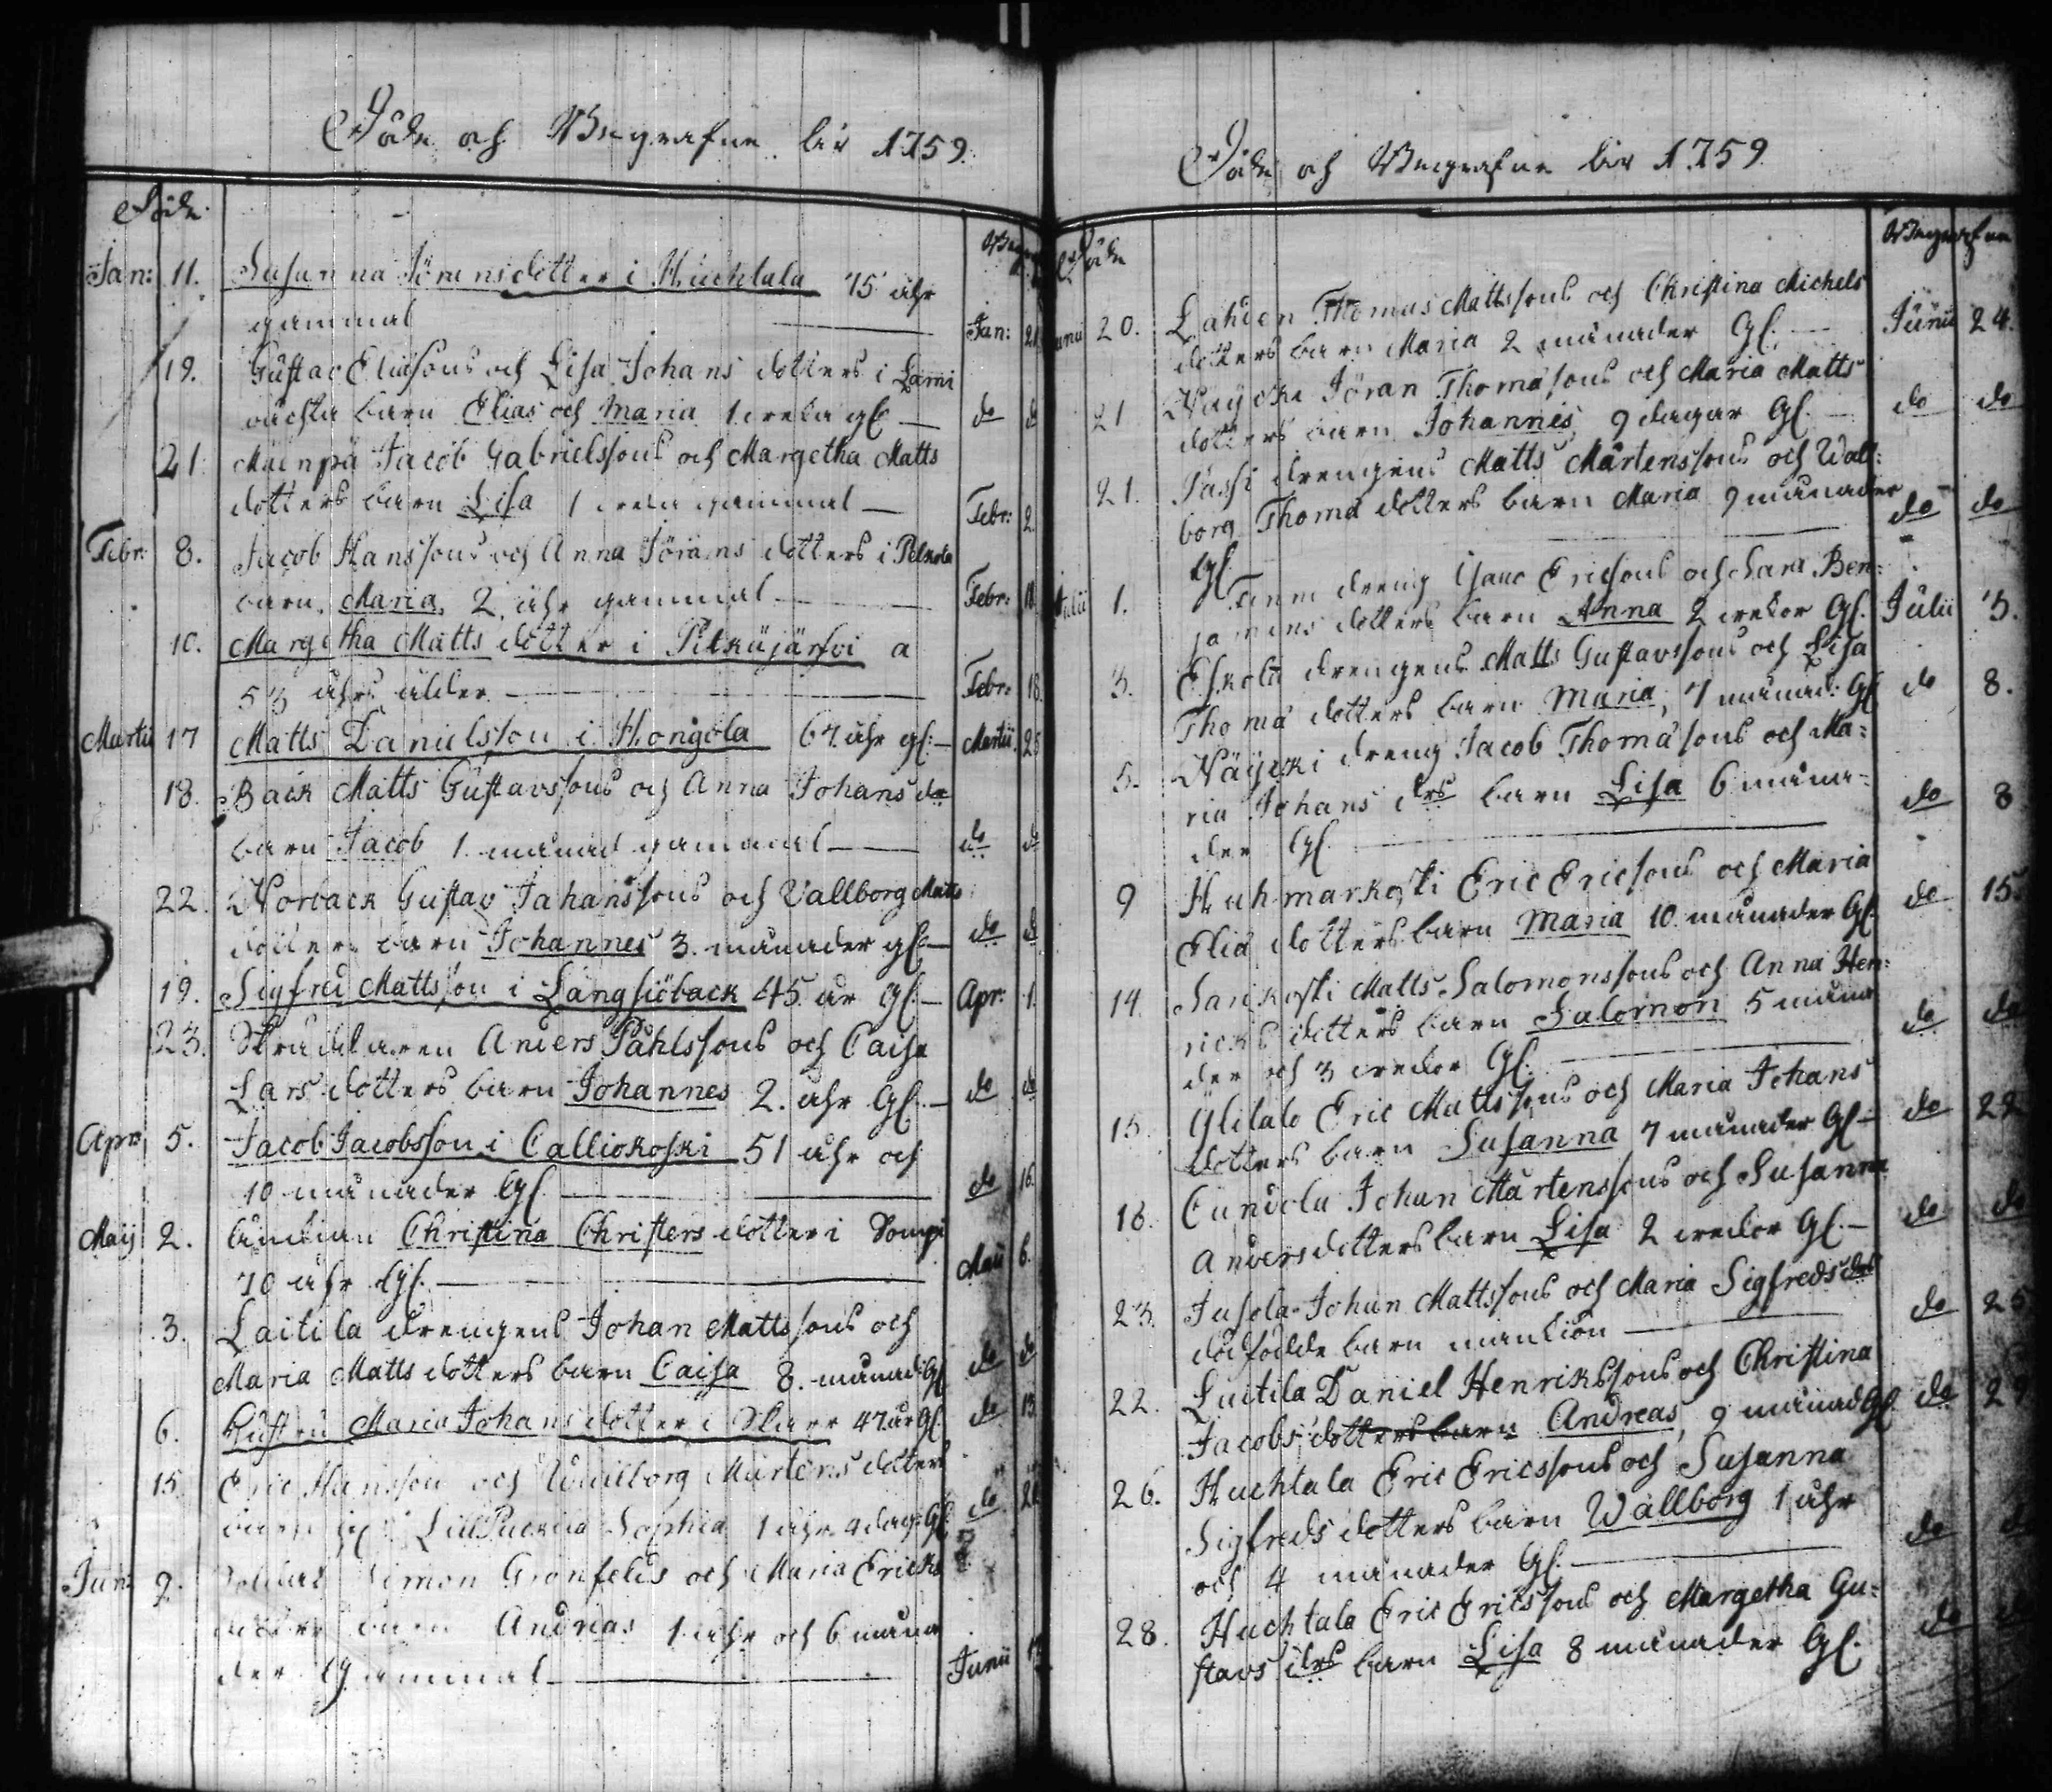 Döde och Begrafne År 1759.
Döde
Begr
Jan: 11. Susanna Jöransdotter i Huchtala 75 åhr
gammal Jan: 21
19. Gustav Eliæsons och Lisa Johans dotters i Lami
barn Elias och Maria 1 weka gl do do
21. Mäenpä Jacob Gabrielssons och Margetha Matts
dotters barn Lisa 1 weka gammal Febr: 2
Febr: 8. Jacob Hanssons och Anna Jörans dotters i Pelkola
barn Maria, 2 åhr gammal Febr: 11
10. Margetha Matts dotter i Pitkäjärfvi a
53 åhrs ålder Febr: 18.
Martii 17 Matts Danielsson i Hongola 67 åhr gl: Martii. 25
18. Back Matts Gustavssons och Anna Johans dr
barn Jacob 1 månad gammal do do
22. Norback Gustav Johanssons och Vallborg Matts
dotters barn Johannes 3. månader gl: do d
19. Sigfred Mattsson i Långsiöback 45 år Gl. Apr: 1.
23. Skräddaren Anders Påhlssons och Caisa
Lars dotters barn Johannes 2. åhr Gl. do do
Apr: 5. Jacob Jacobsson i Calliokoski 51 åhr och
10 månader Gl. do 16.
Maij 2. Enkian Christina Christers dotter i Sompi
70 åhr Gl. Maii 6.
3. Laitila drengens Johan Mattssons och
Maria Matts dotters barn Caisa 8. månad: Gl do do
6. Hustru Maria Johans dotter i Skarr 47 år Gl. do 13
15. Eric Hansson och Wallborg Mårtens dotters
barn Sophia 1 åhr 4 dag: Gl. do 20
Jun: 9. Soldat Simon Gronfelts och Maria Ericks
dotters barn Andreas 1 åhr och 6 måna
der Gammal Junii
Döde och Begrafne År 1759
Döde
Begrafne
Junii 20. Lahden Thomas Mattssons och Christina Michels
dotters barn Maria 2 månader Gl. Junii 24.
21 Näycki Jöran Thomæsons och Maria Matts
dotters barn Johannes, 9 dagar Gl. do do
21. Passi drengens Matts Mårtenssons och Wall:
borg Thomæ dotters barn Maria 9 månader do do
Gl.
Julii 1. Finni dreng Isaac Ericsons och Sara Ben:
jamins dotters barn Anna 2 wekor Gl. Julii 3.
3. Eskola drengens Matts Gustavssons och Lisa
Thomæ dotters barn Maria, 7 månad: Gl do 8.
5. Näycki dreng Jacob Thomæsons och Ma:
ria Johans drs barn Lisa 6 måna: do 8
der Gl.
9 Huhmarkoski Eric Ericsons och Maria
Eliæ dotters barn Maria 10 månader Gl. do 15.
14. Sarikoski Matts Salomonssons och Anna Hen:
ricks dotters barn Salomon 5 måna do do
der och 3 wekor Gl.
15. Ylitalo Eric Mattssons och Maria Johans
dotters barn Susanna 7 månader Gl do 22
16. Cundola Johan Mårtenssons och Susanna
Anders dotters barn Lisa 2 wekor Gl. do do
23. Jusola Johan Mattssons och Maria Sigfreds drs
dödfödde barn mankiön do 25
22. Luitila Daniel Henrikssons och Christina
Jacobs dotters barn Andreas, 9 månad Gl. do 29
26. Huchtala Eric Ericssons och Susanna
Sigfreds dotters barn Wallborg 1 åhr
och 4 månader Gl. do d
28. Huchtala Eric Ericssons och Margetha Gu:
stavs drs barn Lisa 8 månader Gl. do